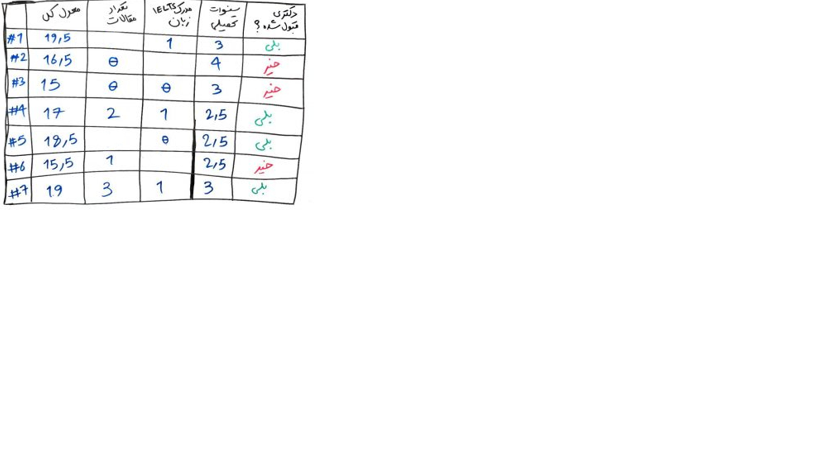 معدل کل تعداد مقالات مدرک IELTS زبان سنوات تحصیلی دکتری قبول شده؟
#1 19,5 1 3 بلی
#2 16,5 0 4 خیر
#3 15 0 0 3 خیر
#4 17 2 1 2,5 بلی
#5 18,5 0 2,5 بلی
#6 15,5 1 2,5 خیر
#7 19 3 1 3 بلی